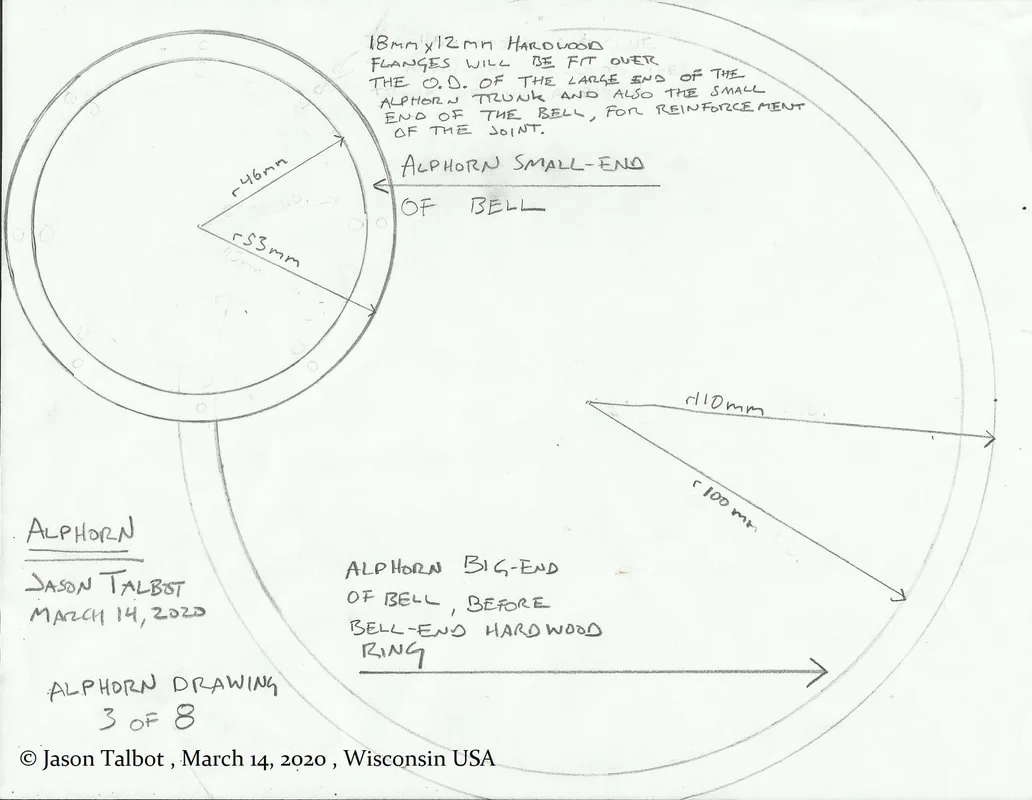 18mm x 12mm HARDWOOD
FLANGES WILL BE FIT OVER
THE O.D. OF THE LARGE END OF THE
ALPHORN TRUNK AND ALSO THE SMALL
END OF THE BELL, FOR REINFORCEMENT
OF THE JOINT.
ALPHORN SMALL-END
OF BELL
r 46mm
r 53mm
r 110mm
r 100 mm
ALPHORN BIG-END
OF BELL, BEFORE
BELL-END HARDWOOD
RING
ALPHORN
JASON TALBOT
MARCH 14, 2020
ALPHORN DRAWING
3 OF 8
© Jason Talbot , March 14, 2020 , Wisconsin USA